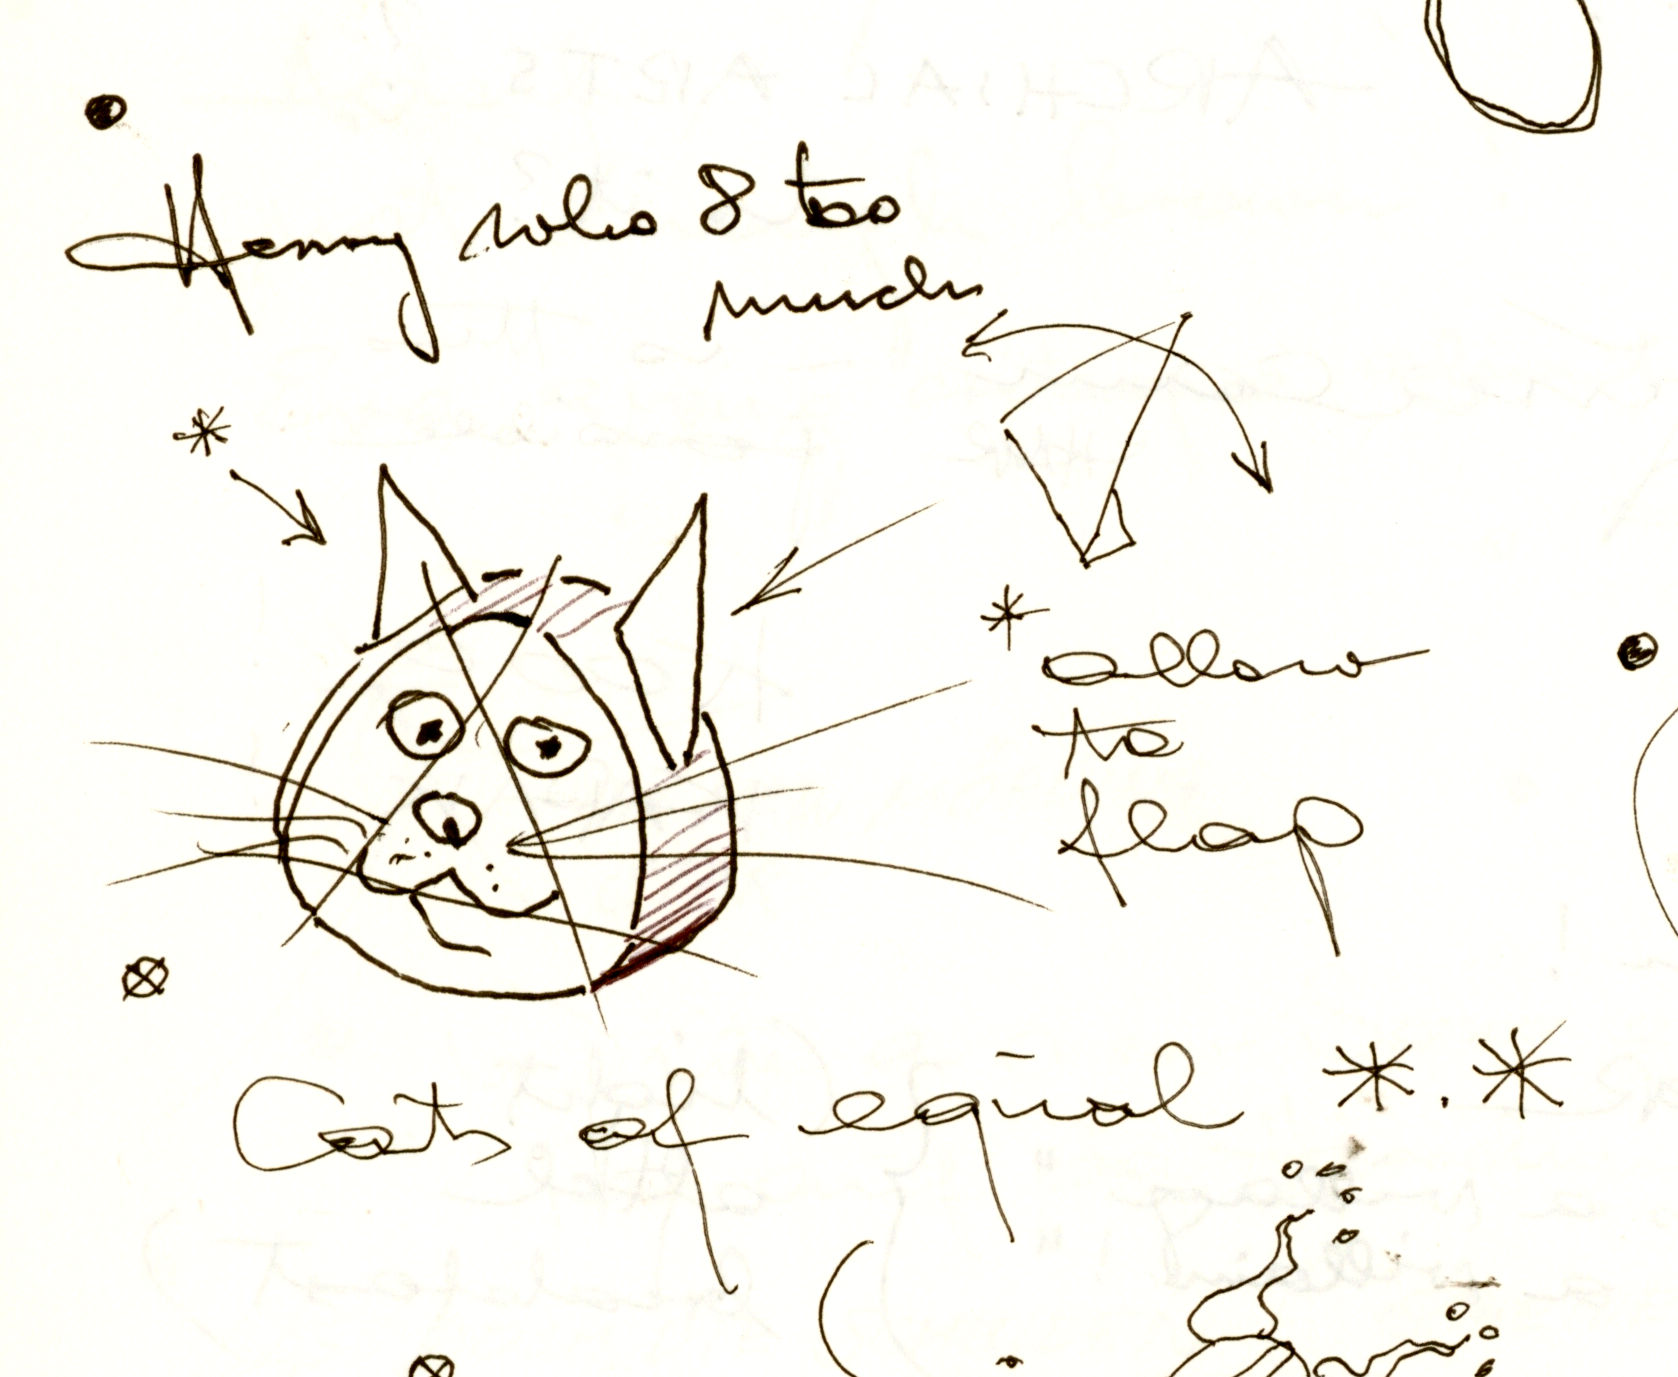 Henry who 8 too
much
*
* allow
to
flap
Cats of equal *.*